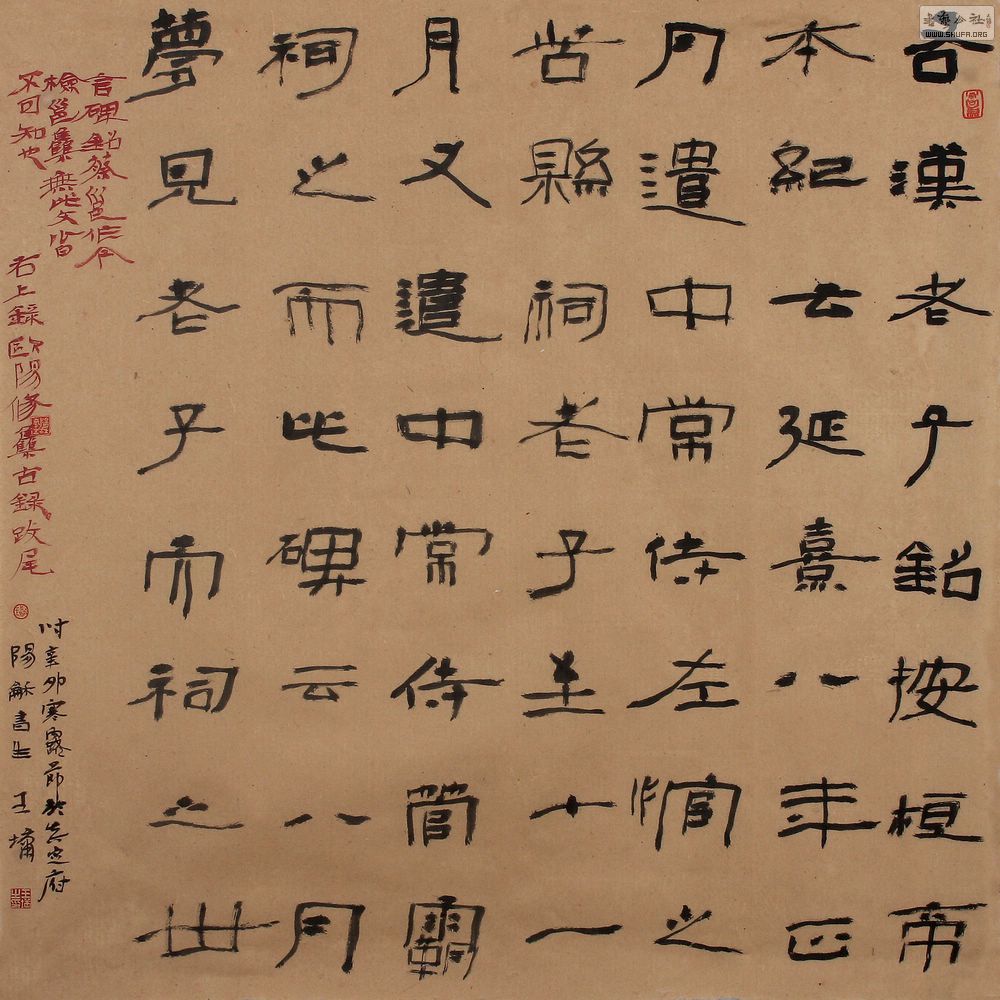 右漢老子銘按桓帝
本紀云延熹八年正
月遣中常侍左悺之
苦縣祠老子至十一
月又遣中常侍管霸
祠之而此碑云八月
夢見老子而祠之世
言碑銘蔡邕作今
檢邕集無此文皆
不可知也
右上録歐陽修集古録跋尾
时辛卯寒露節於真定府
陽龢書生王
书艺公社
WWW.SHUFA.ORG